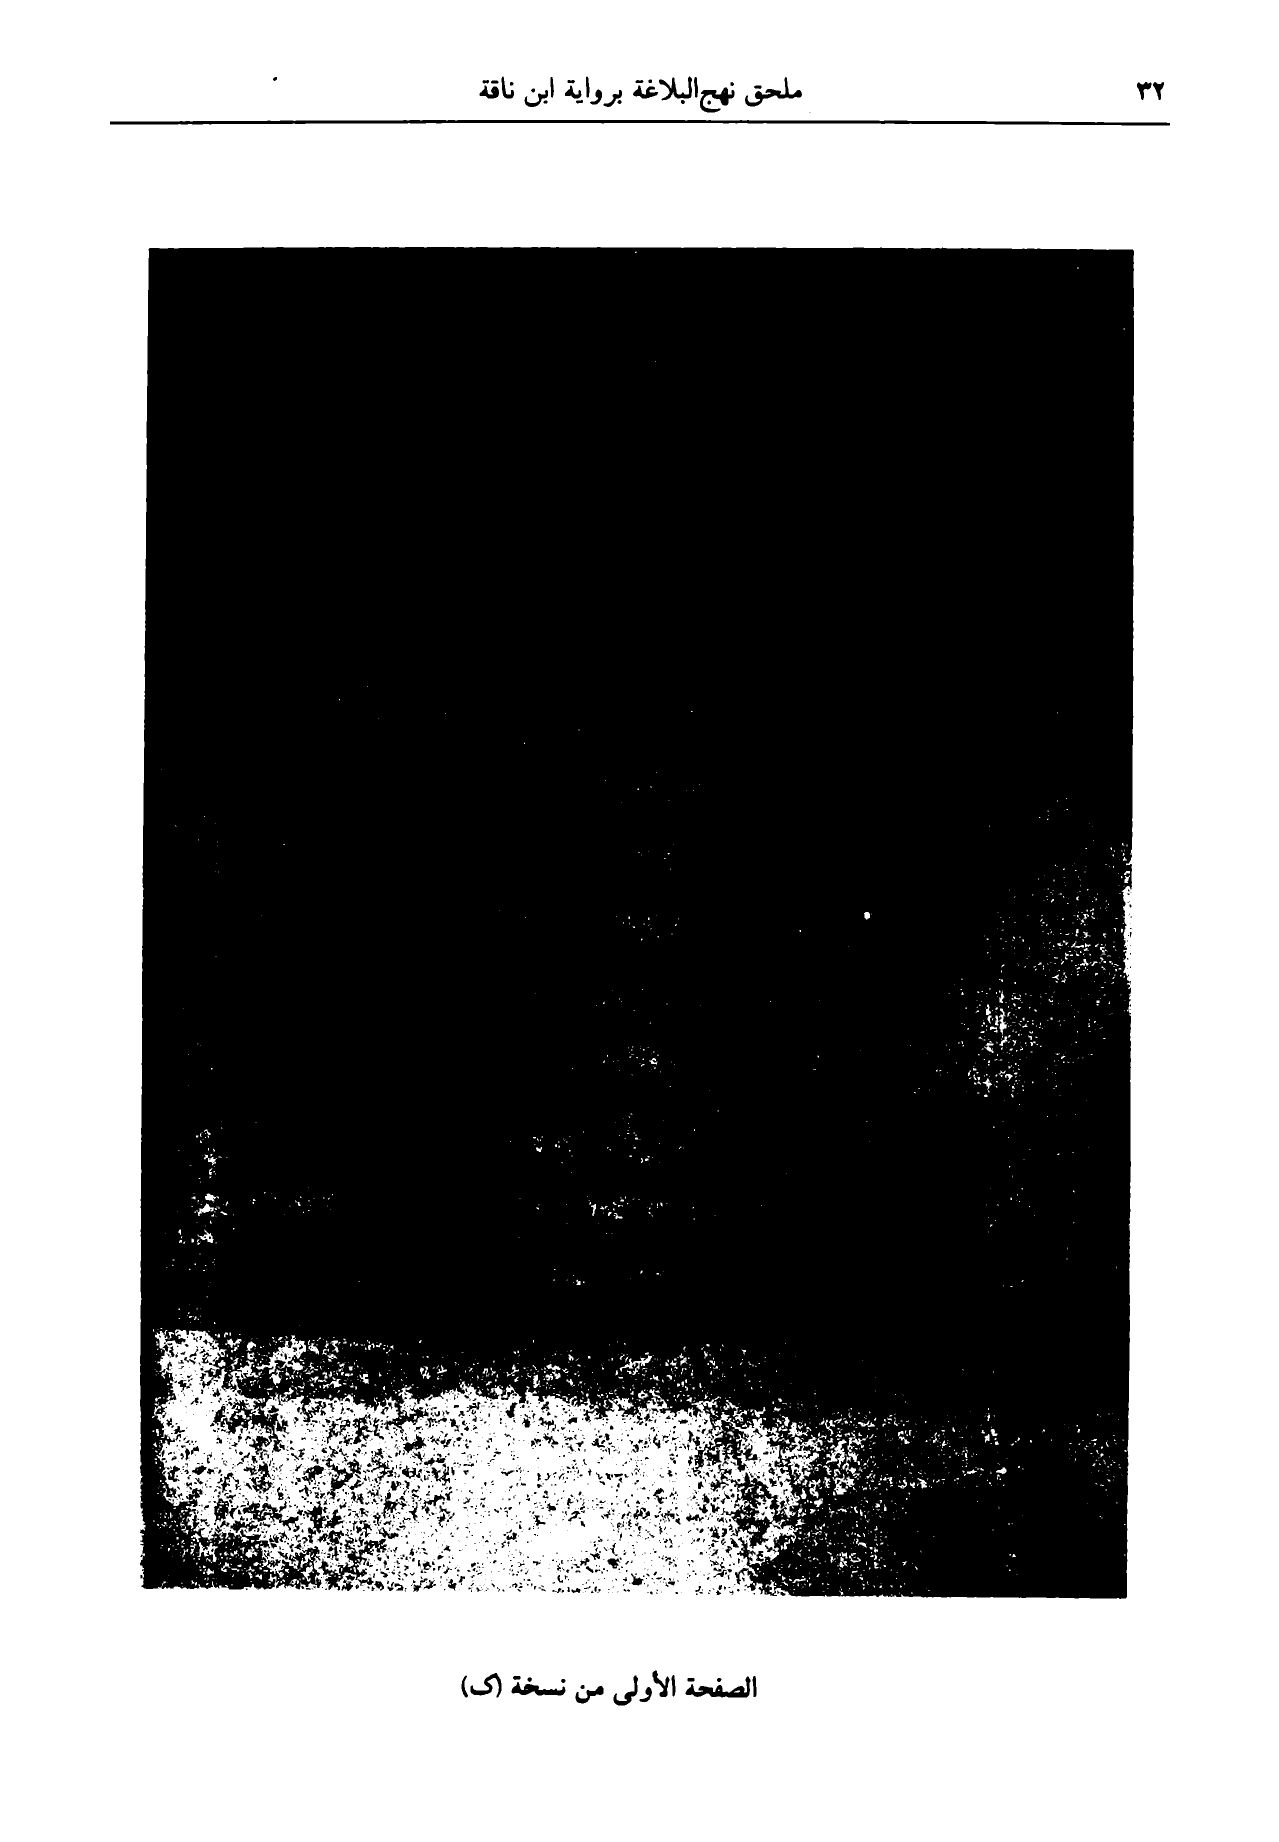 ٣٢
ملحق نهج‌البلاغة برواية ابن ناقة
الصفحة الأولى من نسخة (ک)